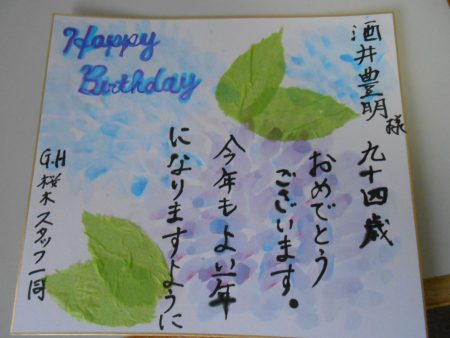 Happy
Birthday
酒井豊明様 九十四歳
おめでとう
ございます。
今年もよい一年
になりますように
G.H 桜木スタッフ一同